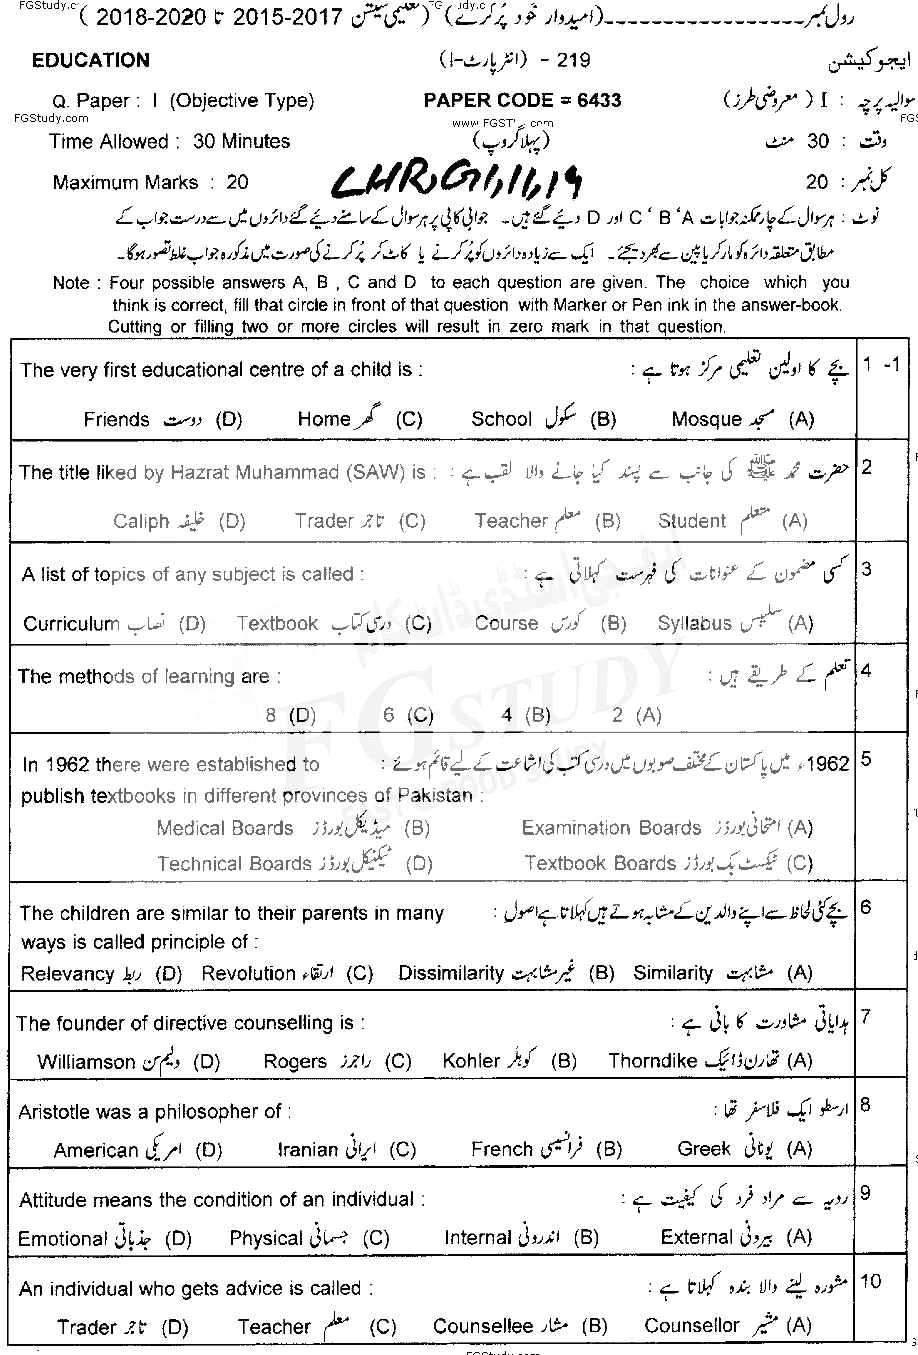 FGStudy.c
رول نمبر ------------------(امیدوار خود پُر کرے) (تعلیمی سیشن 2017-2015 تا 2020-2018 )
EDUCATION 219 - (انٹر پارٹ-I) ایجوکیشن
Q. Paper : I (Objective Type) PAPER CODE = 6433 سوالیہ پرچہ : I (معروضی طرز)
FGStudy.com
Time Allowed : 30 Minutes (پہلا گروپ) وقت : 30 منٹ
Maximum Marks : 20 LHR, G1, 11, 19 کل نمبر : 20
نوٹ : ہر سوال کے چار ممکنہ جوابات A ' B ' C اور D دیئے گئے ہیں۔ جوابی کاپی پر ہر سوال کے سامنے دیئے گئے دائروں میں سے درست جواب کے
مطابق متعلقہ دائرہ کو مارکر یا پین سے بھر دیجئے۔ ایک سے زیادہ دائروں کو پُر کرنے یا کاٹ کر پُر کرنے کی صورت میں مذکورہ جواب غلط تصور ہوگا۔
Note : Four possible answers A, B , C and D to each question are given. The choice which you
think is correct, fill that circle in front of that question with Marker or Pen ink in the answer-book.
Cutting or filling two or more circles will result in zero mark in that question.
The very first educational centre of a child is : بچے کا اولین تعلیمی مرکز ہوتا ہے : 1 -1
Friends دوست (D) Home گھر (C) School سکول (B) Mosque مسجد (A)
The title liked by Hazrat Muhammad (SAW) is : حضرت محمد ﷺ کی جانب سے پسند کیا جانے والا لقب ہے : 2
Caliph خلیفہ (D) Trader تاجر (C) Teacher معلم (B) Student متعلم (A)
A list of topics of any subject is called : کسی مضمون کے عنوانات کی فہرست کہلاتی ہے : 3
Curriculum نصاب (D) Textbook درسی کتاب (C) Course کورس (B) Syllabus سلیبس (A)
The methods of learning are : تعلم کے طریقے ہیں : 4
8 (D) 6 (C) 4 (B) 2 (A)
In 1962 there were established to 1962ء میں پاکستان کے مختلف صوبوں میں درسی کتب کی اشاعت کے لیے قائم ہوئے : 5
publish textbooks in different provinces of Pakistan :
Medical Boards میڈیکل بورڈز (B) Examination Boards امتحانی بورڈز (A)
Technical Boards ٹیکنیکل بورڈز (D) Textbook Boards ٹیکسٹ بک بورڈز (C)
The children are similar to their parents in many بچے کئی لحاظ سے اپنے والدین کے مشابہ ہوتے ہیں کہلاتا ہے اصول : 6
ways is called principle of :
Relevancy ربط (D) Revolution ارتقاء (C) Dissimilarity غیر مشابہت (B) Similarity مشابہت (A)
The founder of directive counselling is : ہدایاتی مشاورت کا بانی ہے : 7
Williamson ولیم سن (D) Rogers راجرز (C) Kohler کوہلر (B) Thorndike تھارن ڈائیک (A)
Aristotle was a philosopher of : ارسطو ایک فلاسفر تھا : 8
American امریکی (D) Iranian ایرانی (C) French فرانسیسی (B) Greek یونانی (A)
Attitude means the condition of an individual : رویہ سے مراد فرد کی کیفیت ہے : 9
Emotional جذباتی (D) Physical جسمانی (C) Internal اندرونی (B) External بیرونی (A)
An individual who gets advice is called : مشورہ لینے والا بندہ کہلاتا ہے : 10
Trader تاجر (D) Teacher معلم (C) Counsellee مشار (B) Counsellor مشیر (A)
FGStudy.com